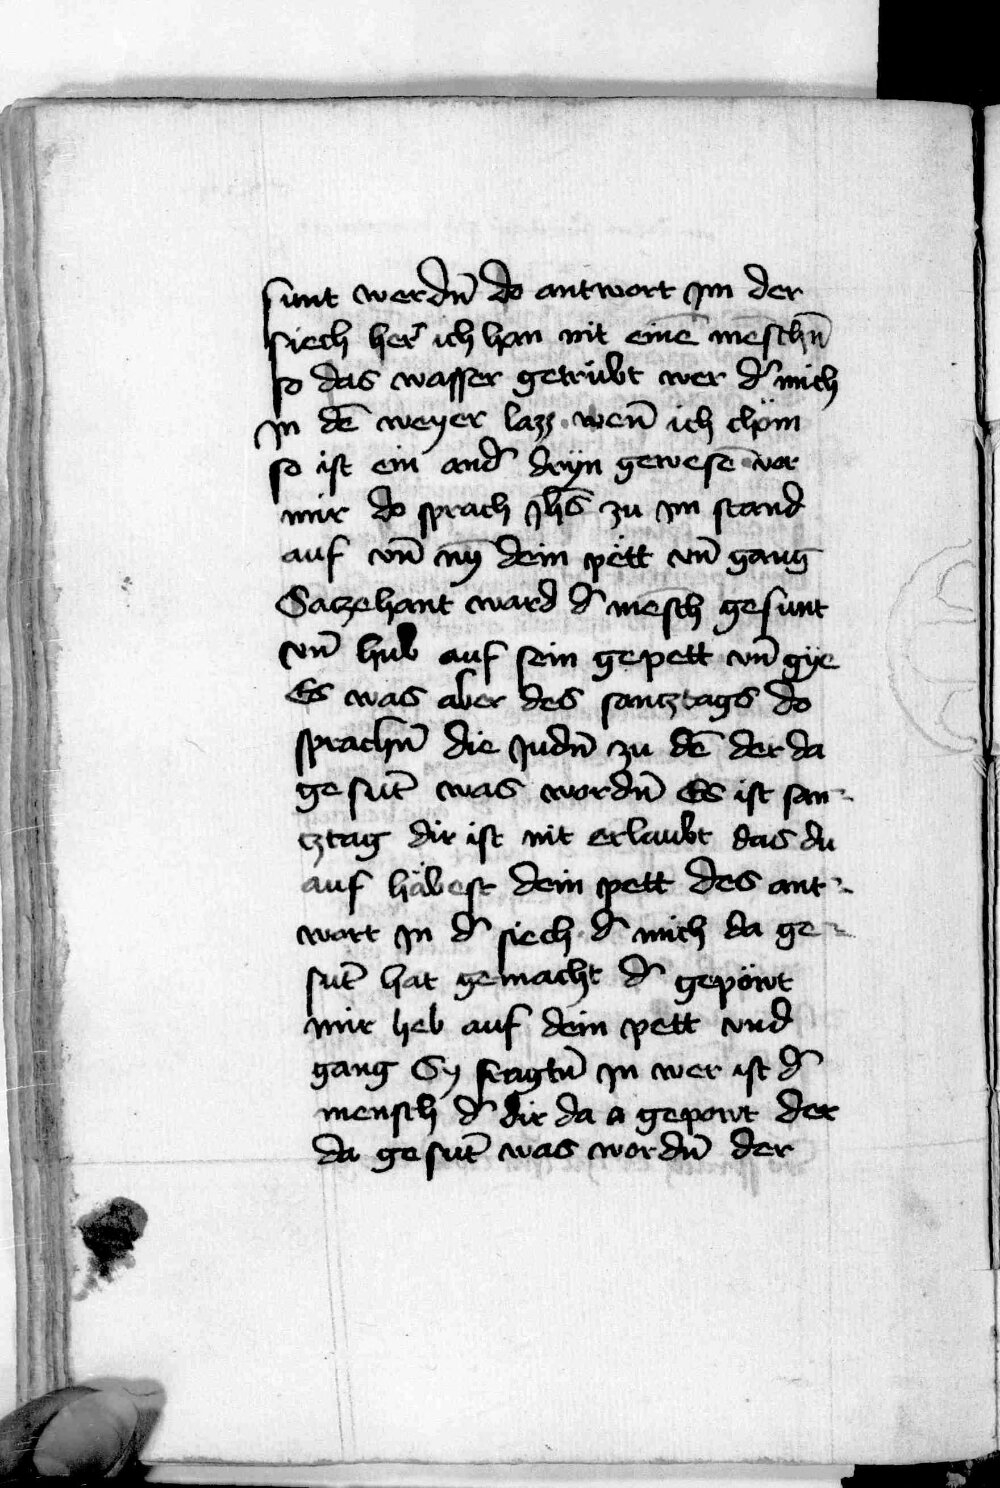 sunt werdn̄ do antwort Jm der
siech her᷑ ich han nit einē mēschn̄
so das wasser getrübt wer d᷑ mich
Jn dē weyer lazz · wen̄ ich chöm
so ist ein and᷑ drÿn gewesē vor
mir do sprach Jhs̄ zu Jm stand
auf vn̄ nȳ dein pett vn̄ gang
Saczehant ward d᷑ mēsch gesunt
vn̄ hub auf sein gepett vn̄ gye
Es was aber des samztags do
sprachn̄ die Judn̄ zu dē der da
gesūt was wordn̄ Es ist sam-
tztag dir ist nit erlaubt das du
auf häbest dein pett des ant-
wort Jn d᷑ siech · d᷑ mich da ge-
sūt hat gemacht d᷑ gepowt
mir heb auf dein pett vnd
gang Sy fragtn̄ Jn wer ist d᷑
mensch d᷑ dir da a gepowt der
da gesūt was wordn̄ der